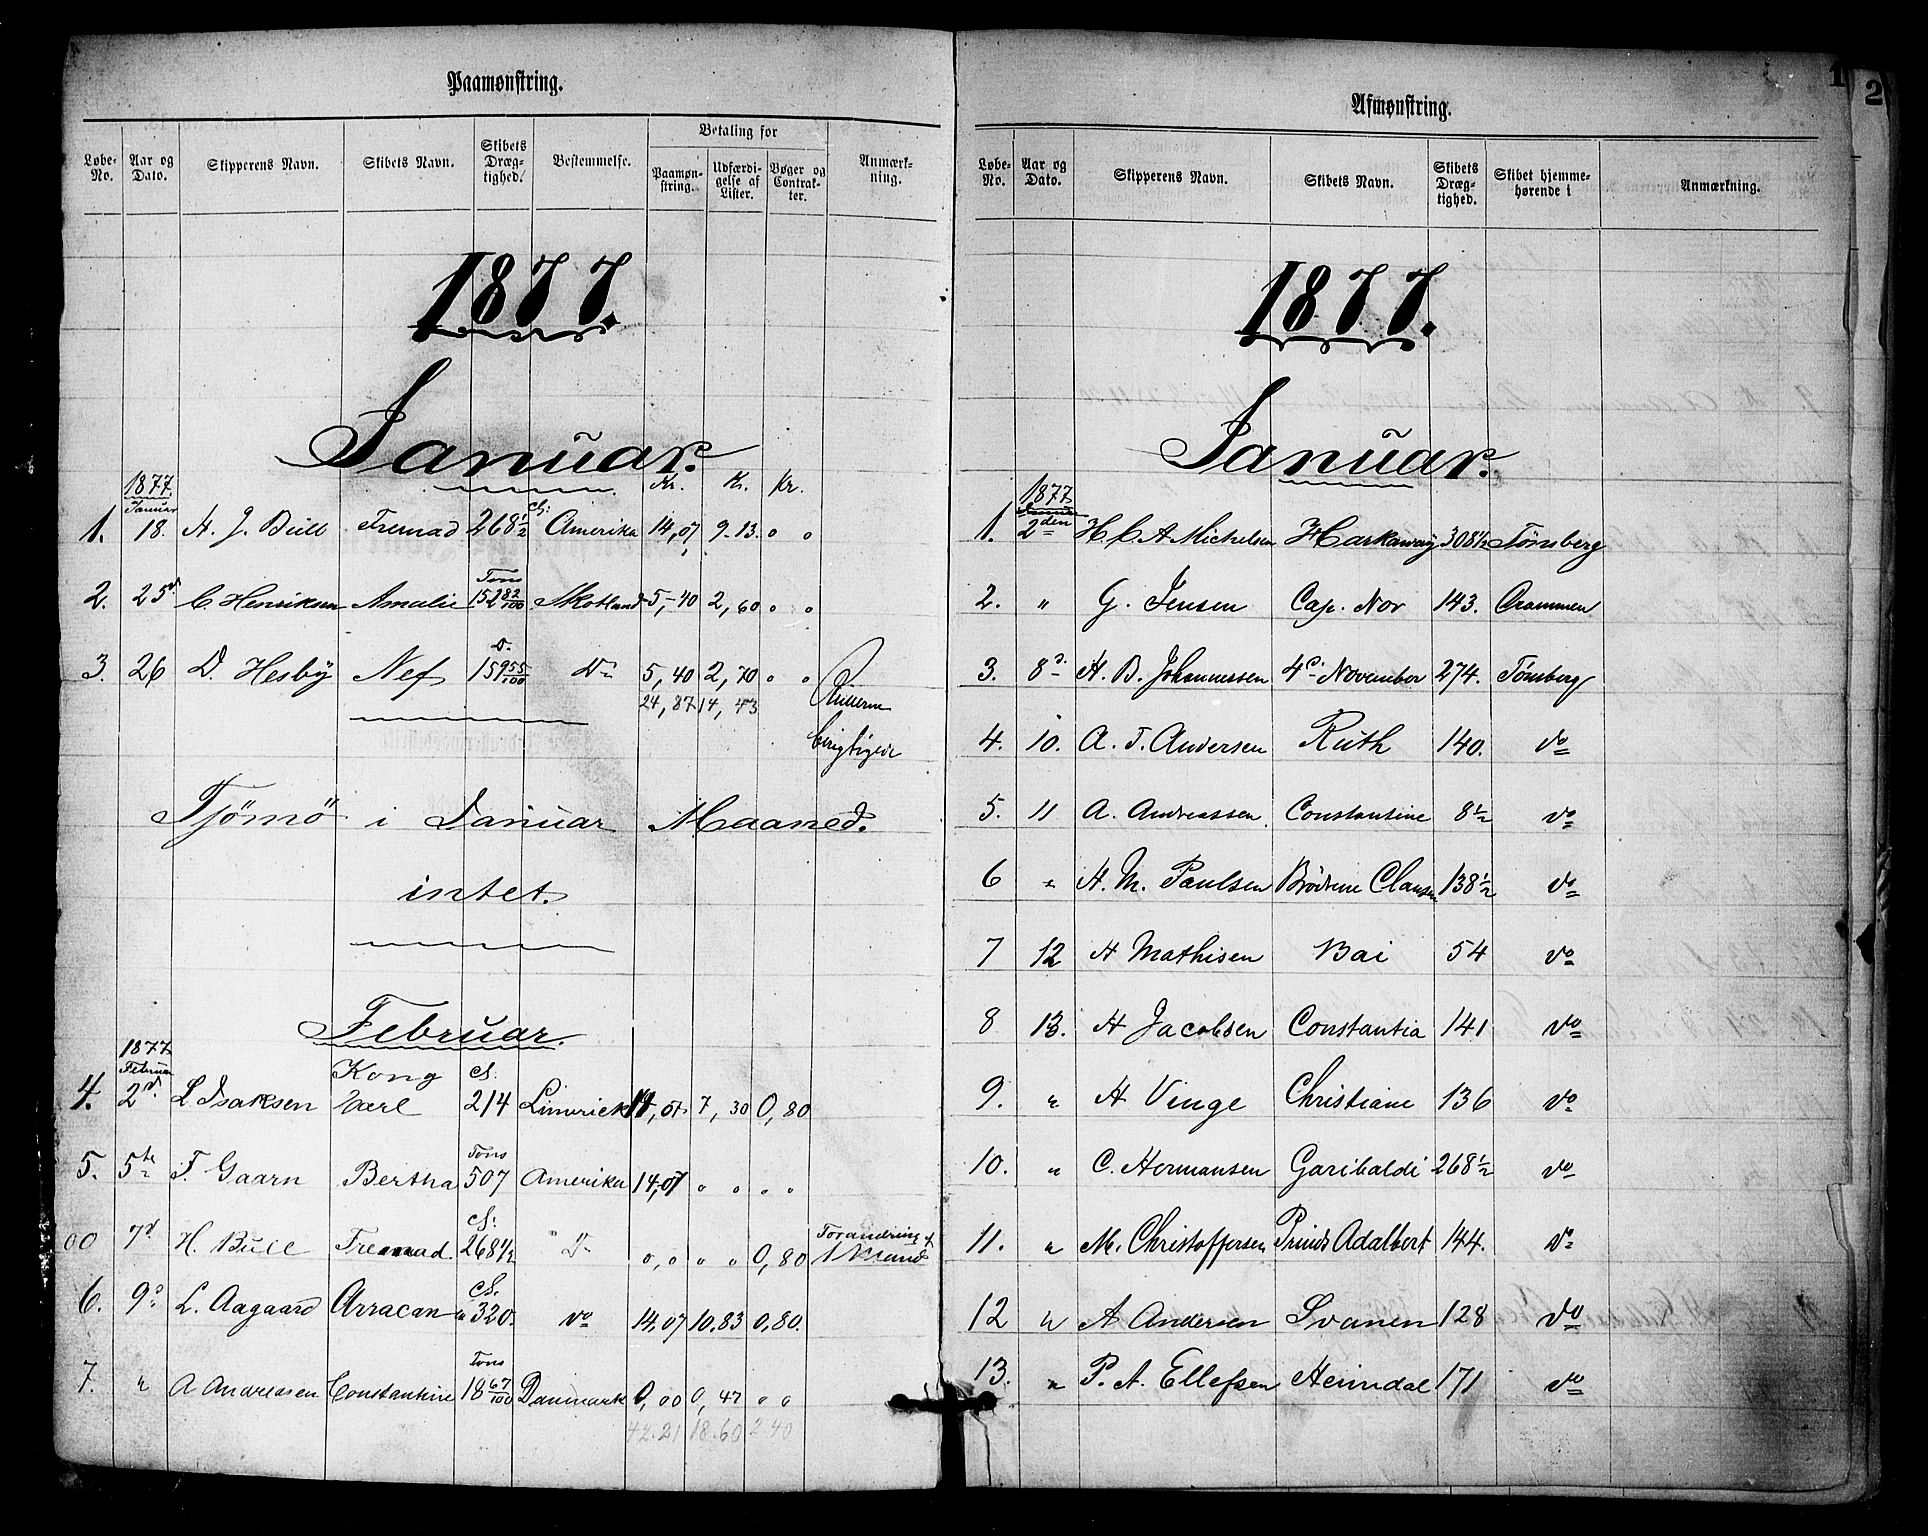 Paamønstring.
Løbe-No. Aar og Dato. Skipperens Navn. Skibets Navn. Skibets Dræg-tighed. Bestemmelse. Betaling for Paamøn-string. Udfærdi-gelse af Lister. Bøger og Contrak-ter. Anmærk-ning.
1877.
Januar.
1877 Kr. Kr. Kr.
Januar
1. 18. H. J. Bull Fremad 268½ Cl: Amerika 14,07 9.13. " "
2. 25d C Henriksen Amalie Tons 152 82/100 Skotland 5,40 2,60 " "
3. 26 D. Hesby Nef Do 159 55/100 Do 5,40 2,70 " "
24,87 14,43
berigtiget
Tjømø i Januar Maaned.
intet.
Februar.
1877
Februar
4. 2d. L Isaksen Kong Carl Cl. 214 Limerick 14,07 7,30 0,80
5. 5te F. Gaarn Bertha Tons 507 Amerika 14,07 " " " "
00 7d H. Bull Fremad. Cl: 268½ " Do 0,0 " " 0,80 Forandring af 1 Mand
6. 9d L. Aagaard Arracan Cl. 320. do 14,07 10.83 0,80.
7. " A Andreasen Constantine Tons 18 67/100 Danmark 0,00 0,47 " "
42.21 18.60 2.40
1
2
Afmønstring.
Løbe-No. Aar og Dato. Skipperens Navn. Skibets Navn. Skibets Dræg-tighed. Skibet hjemme-hørende i Anmærkning.
1877.
Januar.
1877
Januar
1. 2den H. C A Michelsen Harkaway 308½ Tønsberg
2. " G. Jensen Cap. Nor 143. Drammen
3. 8d H. B. Johannessen 4de November 274. Tønsberg
4. 10. A. T. Andersen Ruth 140. do
5. 11 A. Andreassen Constantine 8½ do
6 " H. M. Paulsen Brødrene Clausen 138½ do
7 12 H Mathisen Bai 54 do
8 13. H Jacobsen Constantia 141 do
9. " H Vinge Christiane 136 do
10. " C. Hermansen Garibaldi 268½ do
11. " M. Christoffersen Prinds Adalbert 144. do
12 " A Andersen Svanen 128 do
13. " P. A. Ellefsen Heimdal 171 do